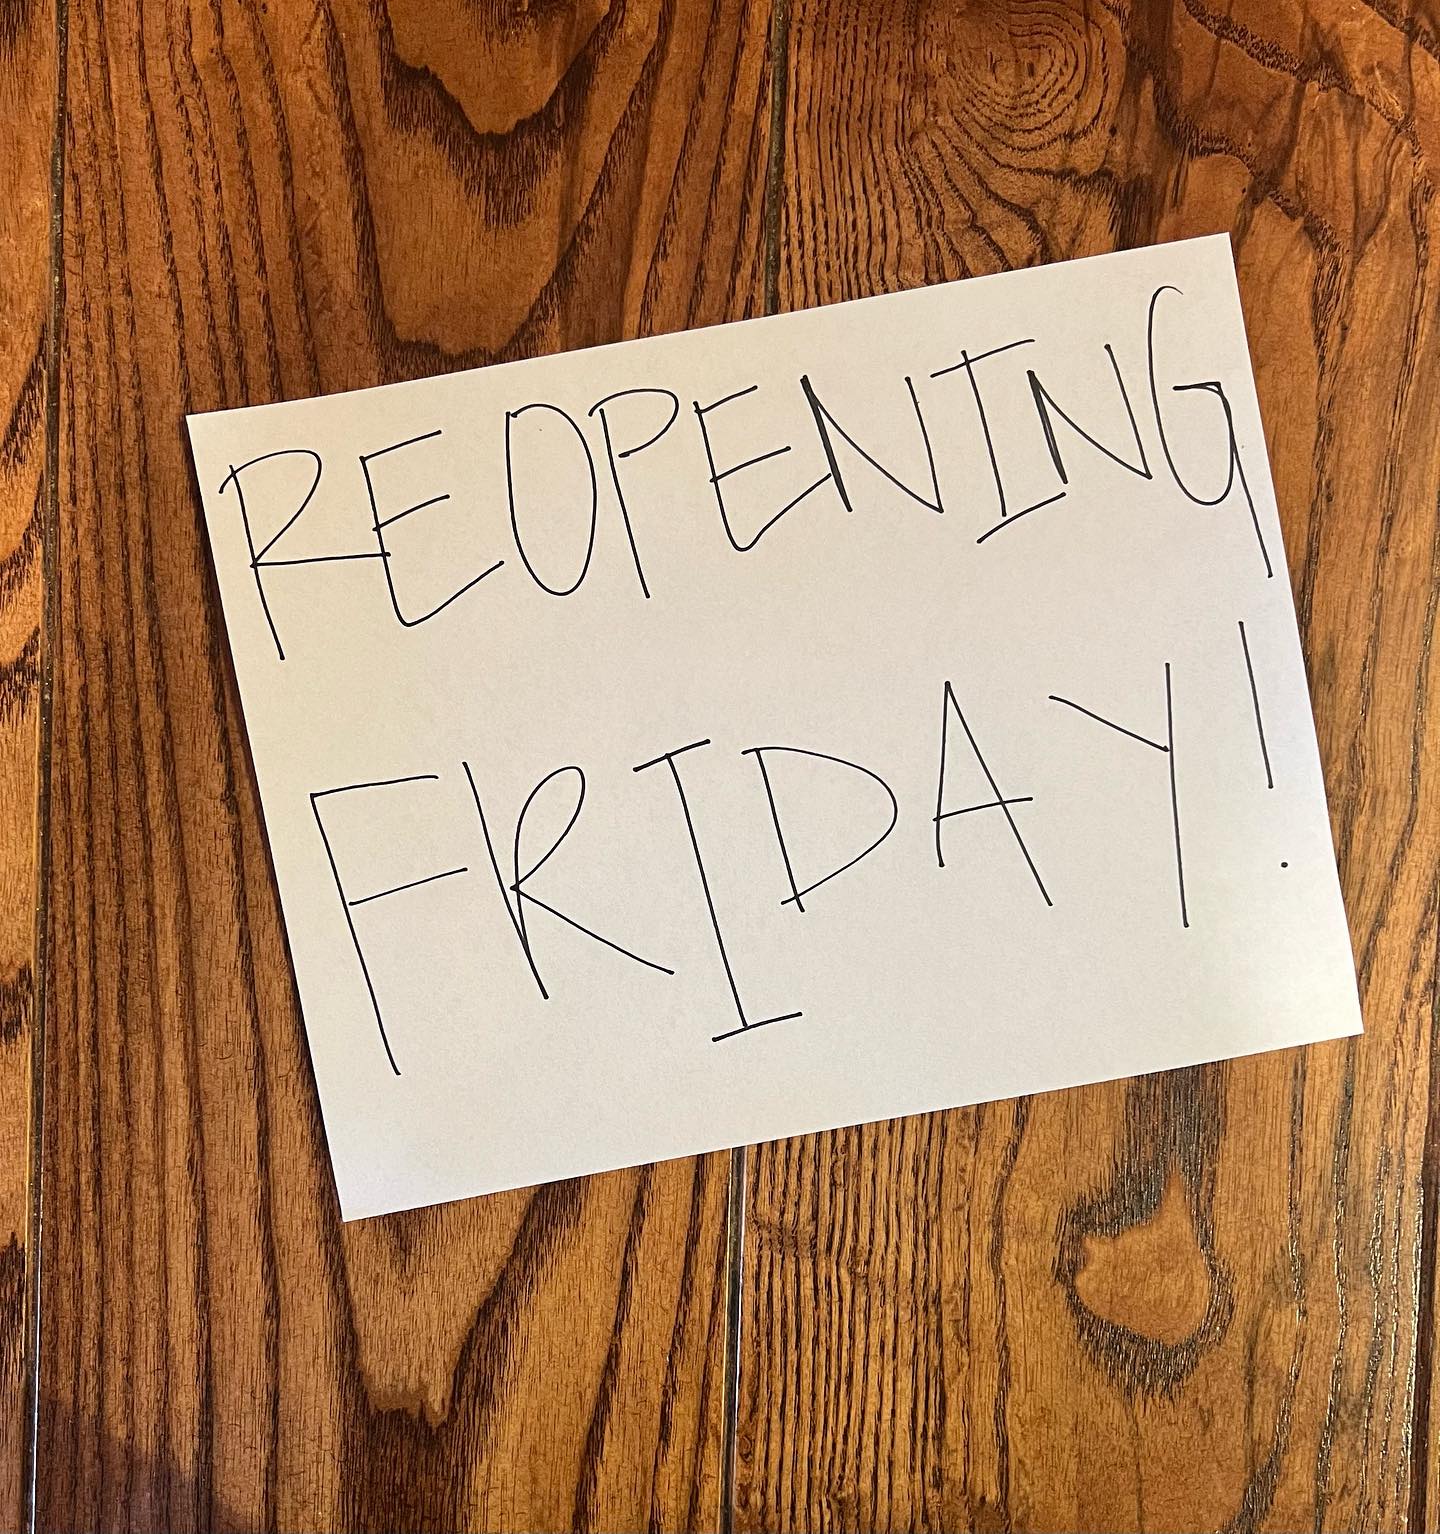 REOPENING
FRIDAY!